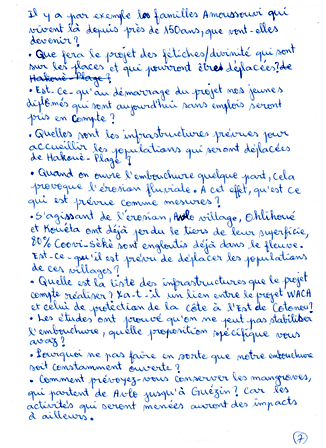 Il y a par exemple les familles Amoussouvi qui
vivent là depuis près de 150ans, que vont-elles
devenir?
• Que fera le projet des fétiches/divinité qui sont
sur les places et qui pourront être déplacées? de
Hakouè-Plage?
• Est-ce-qu'au démarrage du projet nos jeunes
diplômés qui sont aujourd'hui sans emplois seront
pris en compte?
• Quelles sont les infrastructures prévues pour
accueillir les populations qui seront déplacées
de Hakouè-Plage?
• Quand on ouvre l'embouchure quelque part, cela
provoque l'érosion fluviale. A cet effet, qu'est ce
qui est prévue comme mesures?
• S'agissant de l'érosion, Avlo village, Ohlihoué
et Kouéta ont déjà perdu le tiers de leur superficie,
80% Coovi-Séhè sont engloutis déjà dans le fleuve.
Est-ce-qu'il est prévu de déplacer les populations
de ces villages?
• Quelle est la liste des infrastructures que le projet
compte réaliser? Ya-t-il un lien entre le projet WACA
et celui de protection de la côte à l'Est de Cotonou?
• Les études ont prouvé qu'on ne peut pas stabiliser
l'embouchure, quelle proposition spécifique vous
avez?
• Pourquoi ne pas faire en sorte que notre embouchure
soit constamment ouverte?
• Comment prévoyez-vous conserver les mangroves,
qui partent de Avlo jusqu'à Guézin? Car les
activités qui seront menées auront des impacts
d'ailleurs.
(7)